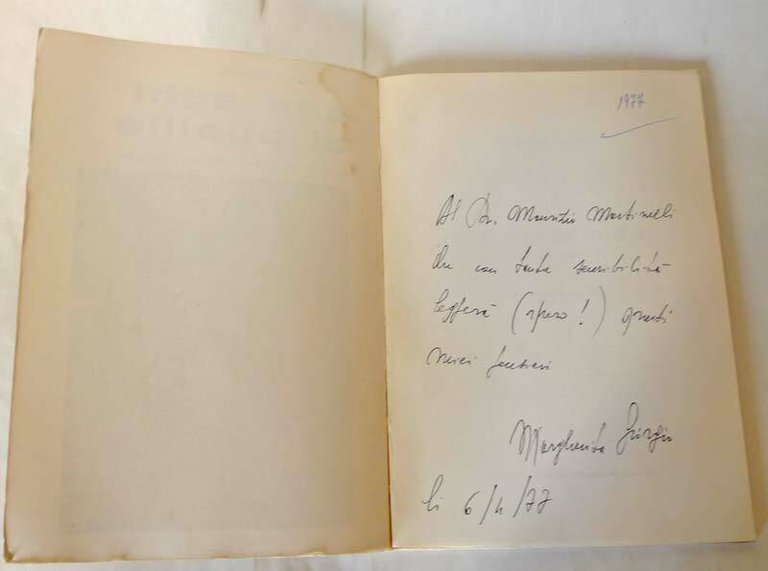 1977
Al Dr. Maurizio Martinelli
che con tanta sensibilità
leggerà (spero!) questi
miei sentieri
Margherita Giorgio
lì 6/4/77